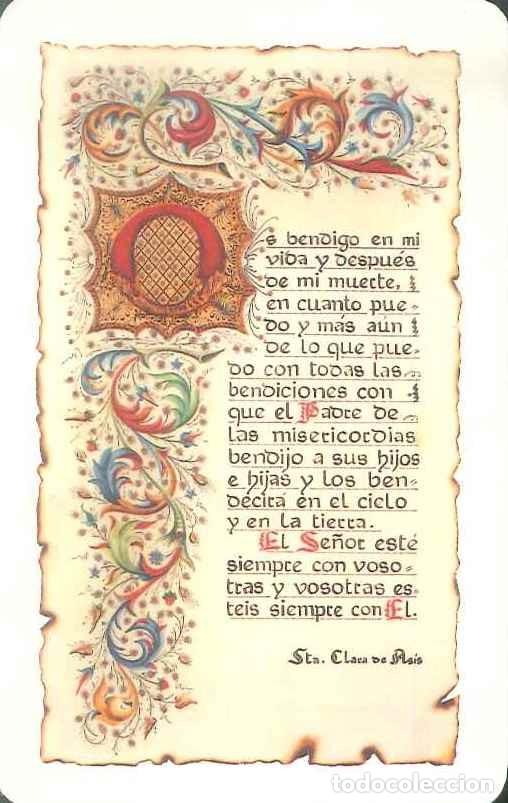 Os bendigo en mi
vida y después
de mi muerte,
en cuanto pue-
do y más aún
de lo que pue-
do con todas las
bendiciones con
que el Padre de
las misericordias
bendijo a sus hijos
e hijas y los ben-
decirá en el cielo
y en la tierra.
El Señor esté
siempre con voso-
tras y vosotras es-
teis siempre con El.
Sta. Clara de Asís
todocoleccion